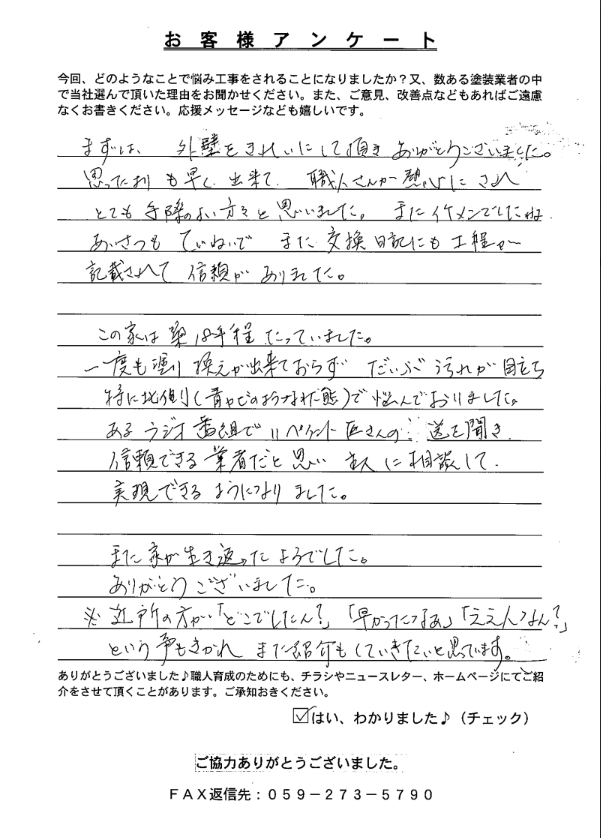 お客様アンケート
今回、どのようなことで悩み工事をされることになりましたか？又、数ある塗装業者の中
で当社選んで頂いた理由をお聞かせください。また、ご意見、改善点などもあればご遠慮
なくお書きください。応援メッセージなども嬉しいです。
まずは、外壁をきれいにして頂きありがとうございました。
思ったより も早く出来て 職人さんが
とても手際のよい方々と思いました。またイケメンでしたね
あいさつも ていねいで また 交換日記にも工程が
記載されて 信頼が ありました。
この家は築18年程たっていました。
一度も塗り換えが出来ておらず だいぶ汚れが目立ち
特に北側(青カビのような状態)で悩んでおりました。
あるラジオ番組で リペイント匠さんの 放送を聞き
信頼できる業者だと思い 主人に相談して
実現できるようになりました。
また家が生き返ったようでした。
ありがとうございました。
※近所の方が「どこでしたん?」「早かったなぁ」「ええんちゃん?」
という声もきかれ また紹介もしていきたいと思っています。
ありがとうございました♪職人育成のためにも、チラシやニュースレター、ホームページにてご紹
介をさせて頂くことがあります。ご承知おきください。
☑はい、わかりました♪（チェック）
ご協力ありがとうございました。
ＦＡＸ返信先：０５９－２７３－５７９０